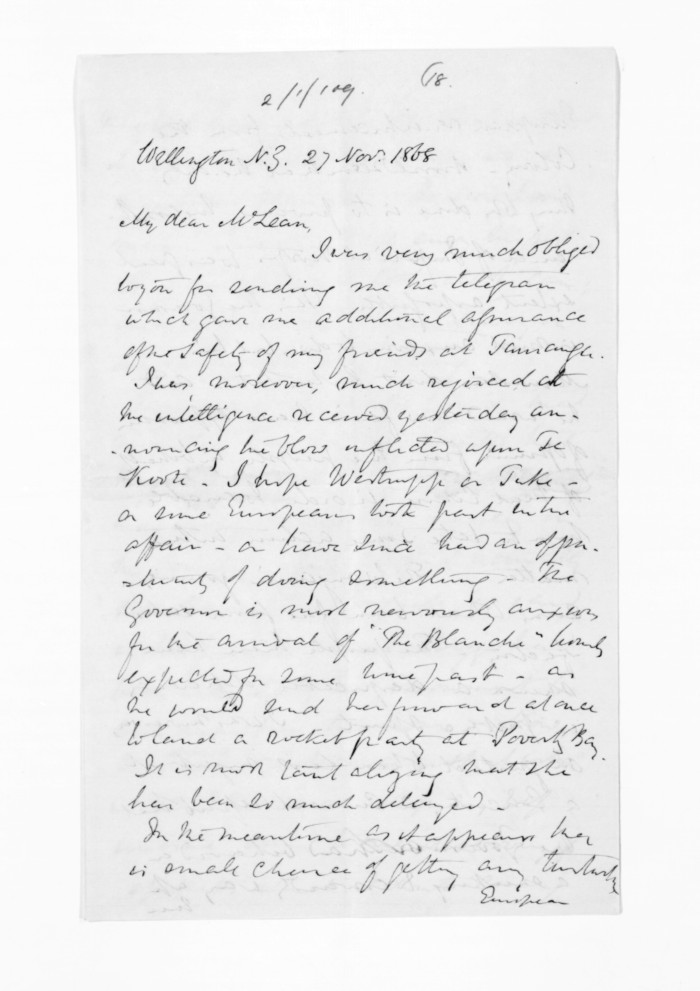 2/1/109. 18.
Wellington N.Z. 27 Nov. 1868
My dear McLean,
I was very much obliged
to you for sending me the telegram
which gave me additional assurance
of the safety of my friends at Tauranga.
I was moreover, much rejoiced at
the intelligence received yesterday an-
-nouncing the blow inflicted upon Te
Koote - I hope Westrupp or Tuke -
or some Europeans took part in the
affair - or have since had an oppor-
-tunity of doing something - The
Governor is most nervously anxious
for the arrival of "The Blanche" hourly
expected for some time past - as
he would send her forward at once
to land a rocket party at Poverty Bay.
It is most tantalizing that she
has been so much delayed -
In the meantime as it appears there
is small chance of getting any trustworthy
European